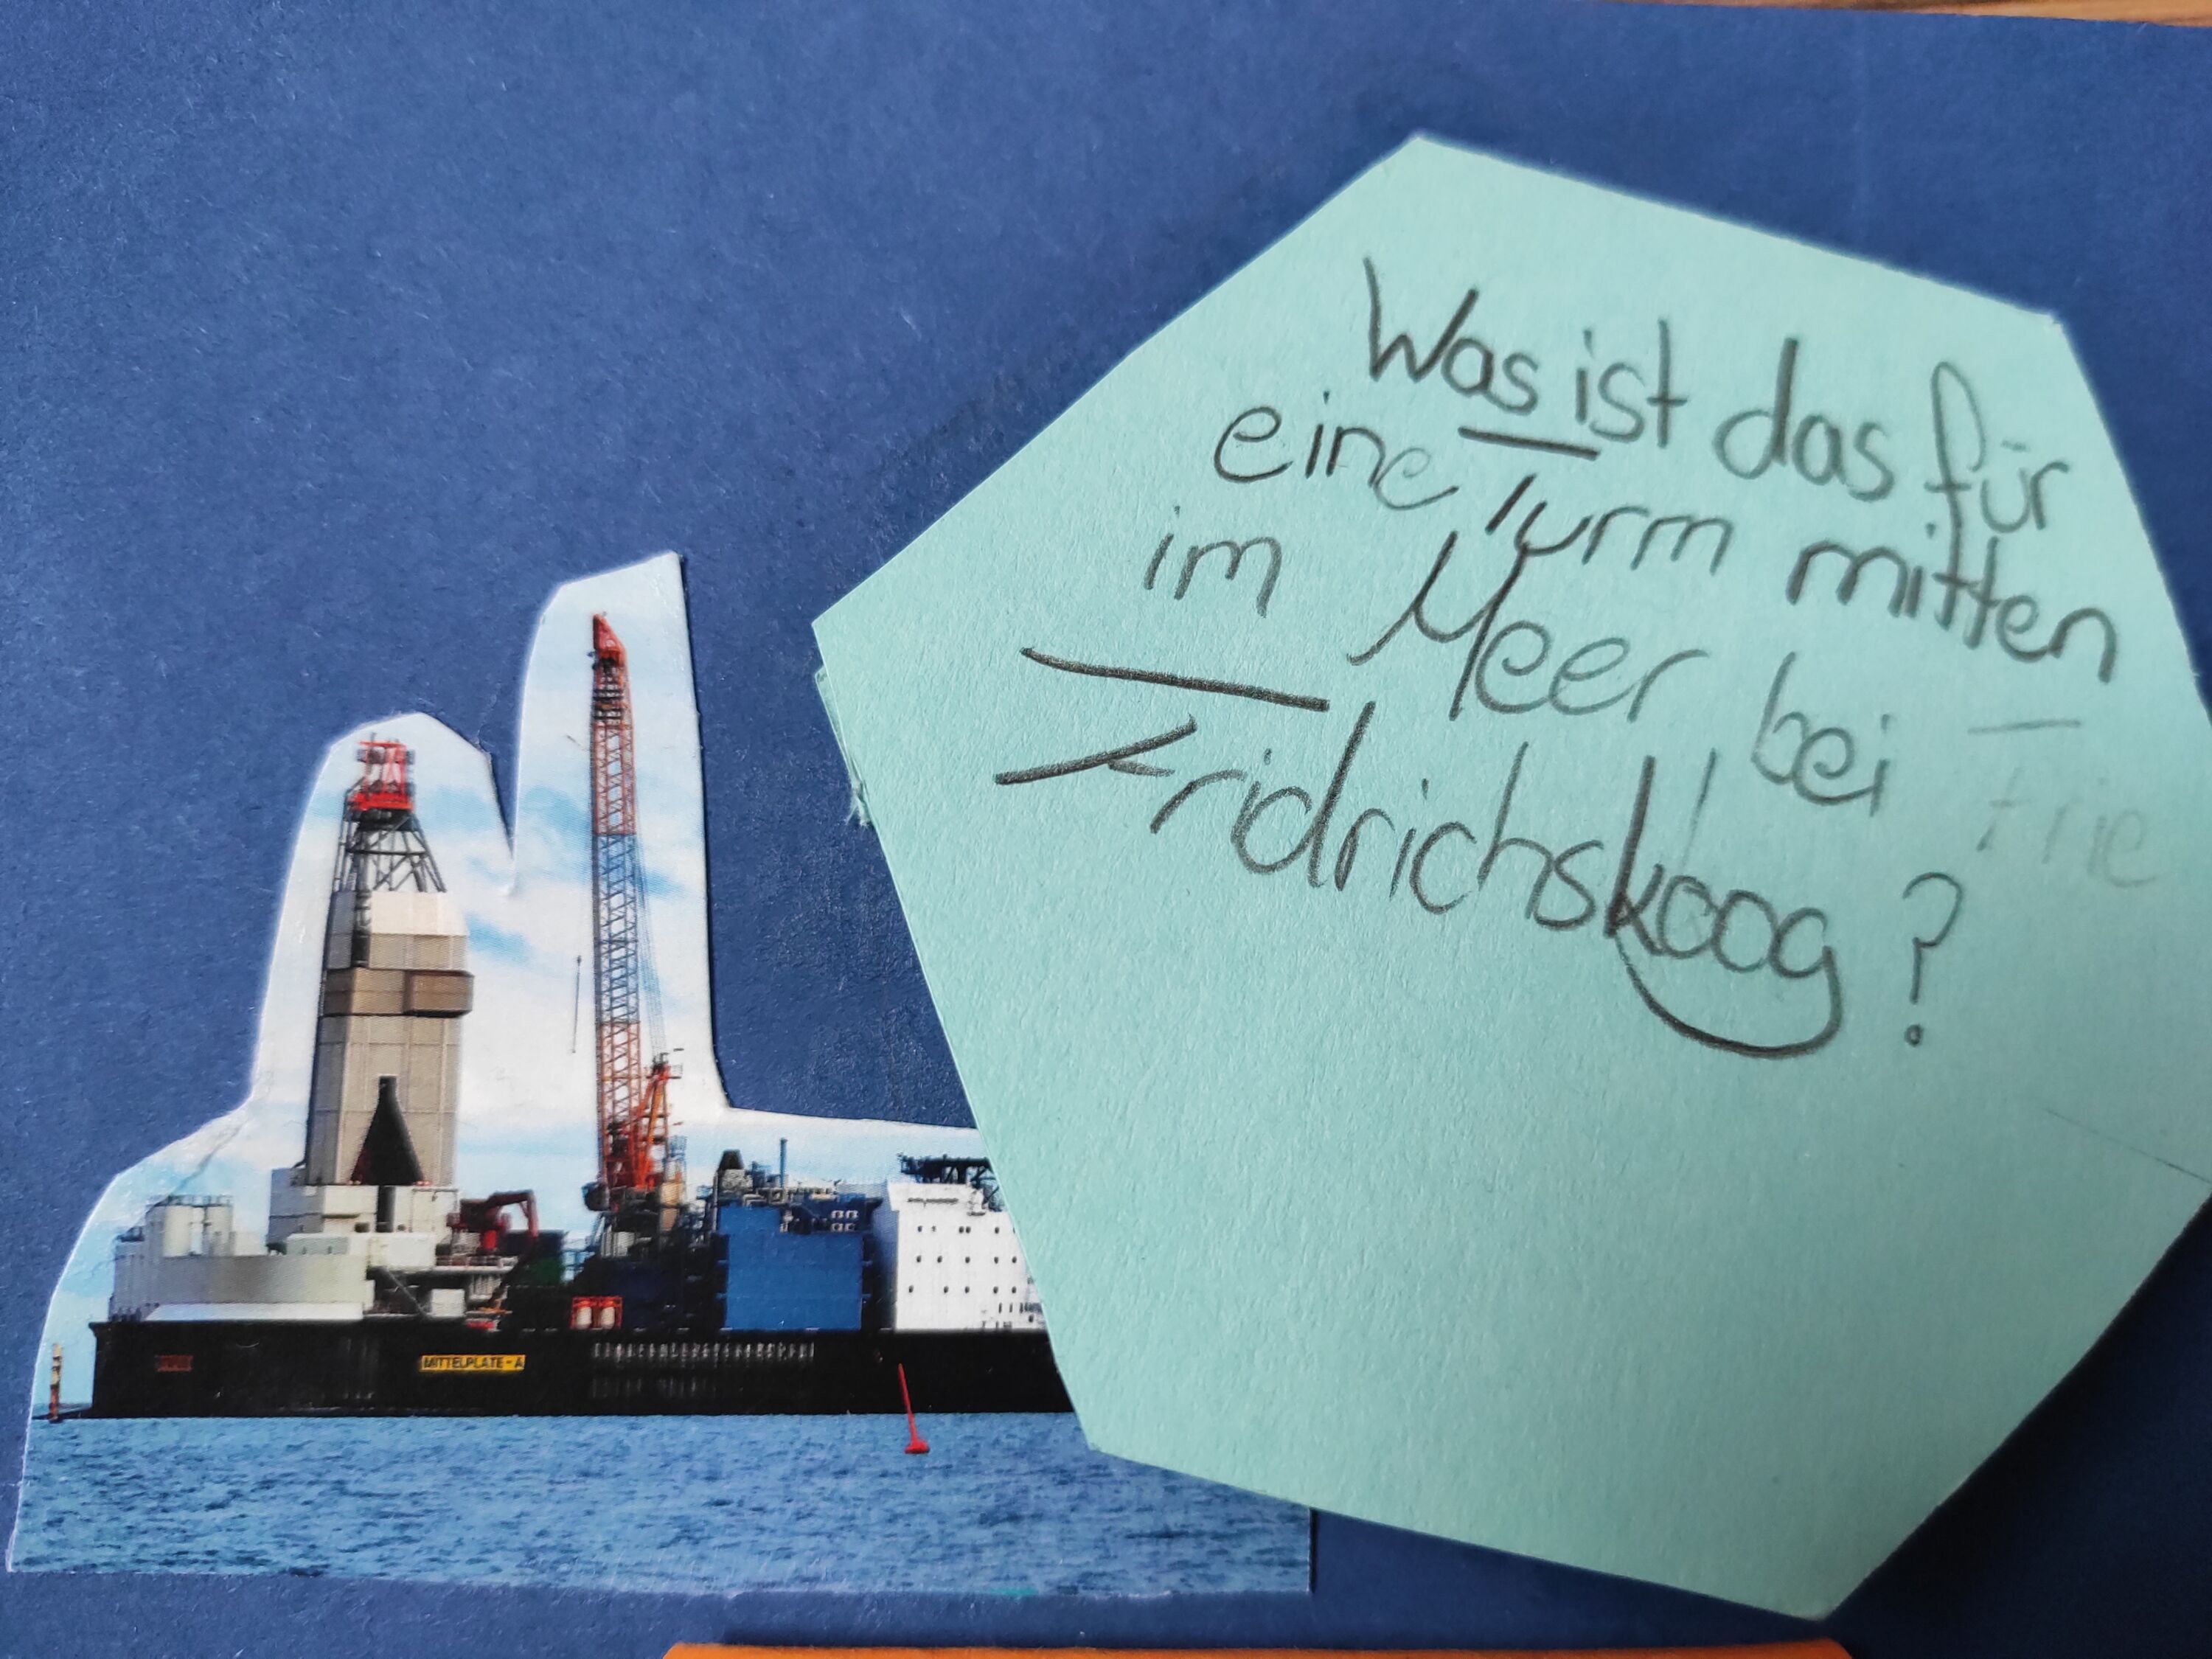 Was ist das für
eine Turm mitten
im Meer bei
Fridrichskoog?
Frie
MITTELPLATE-A